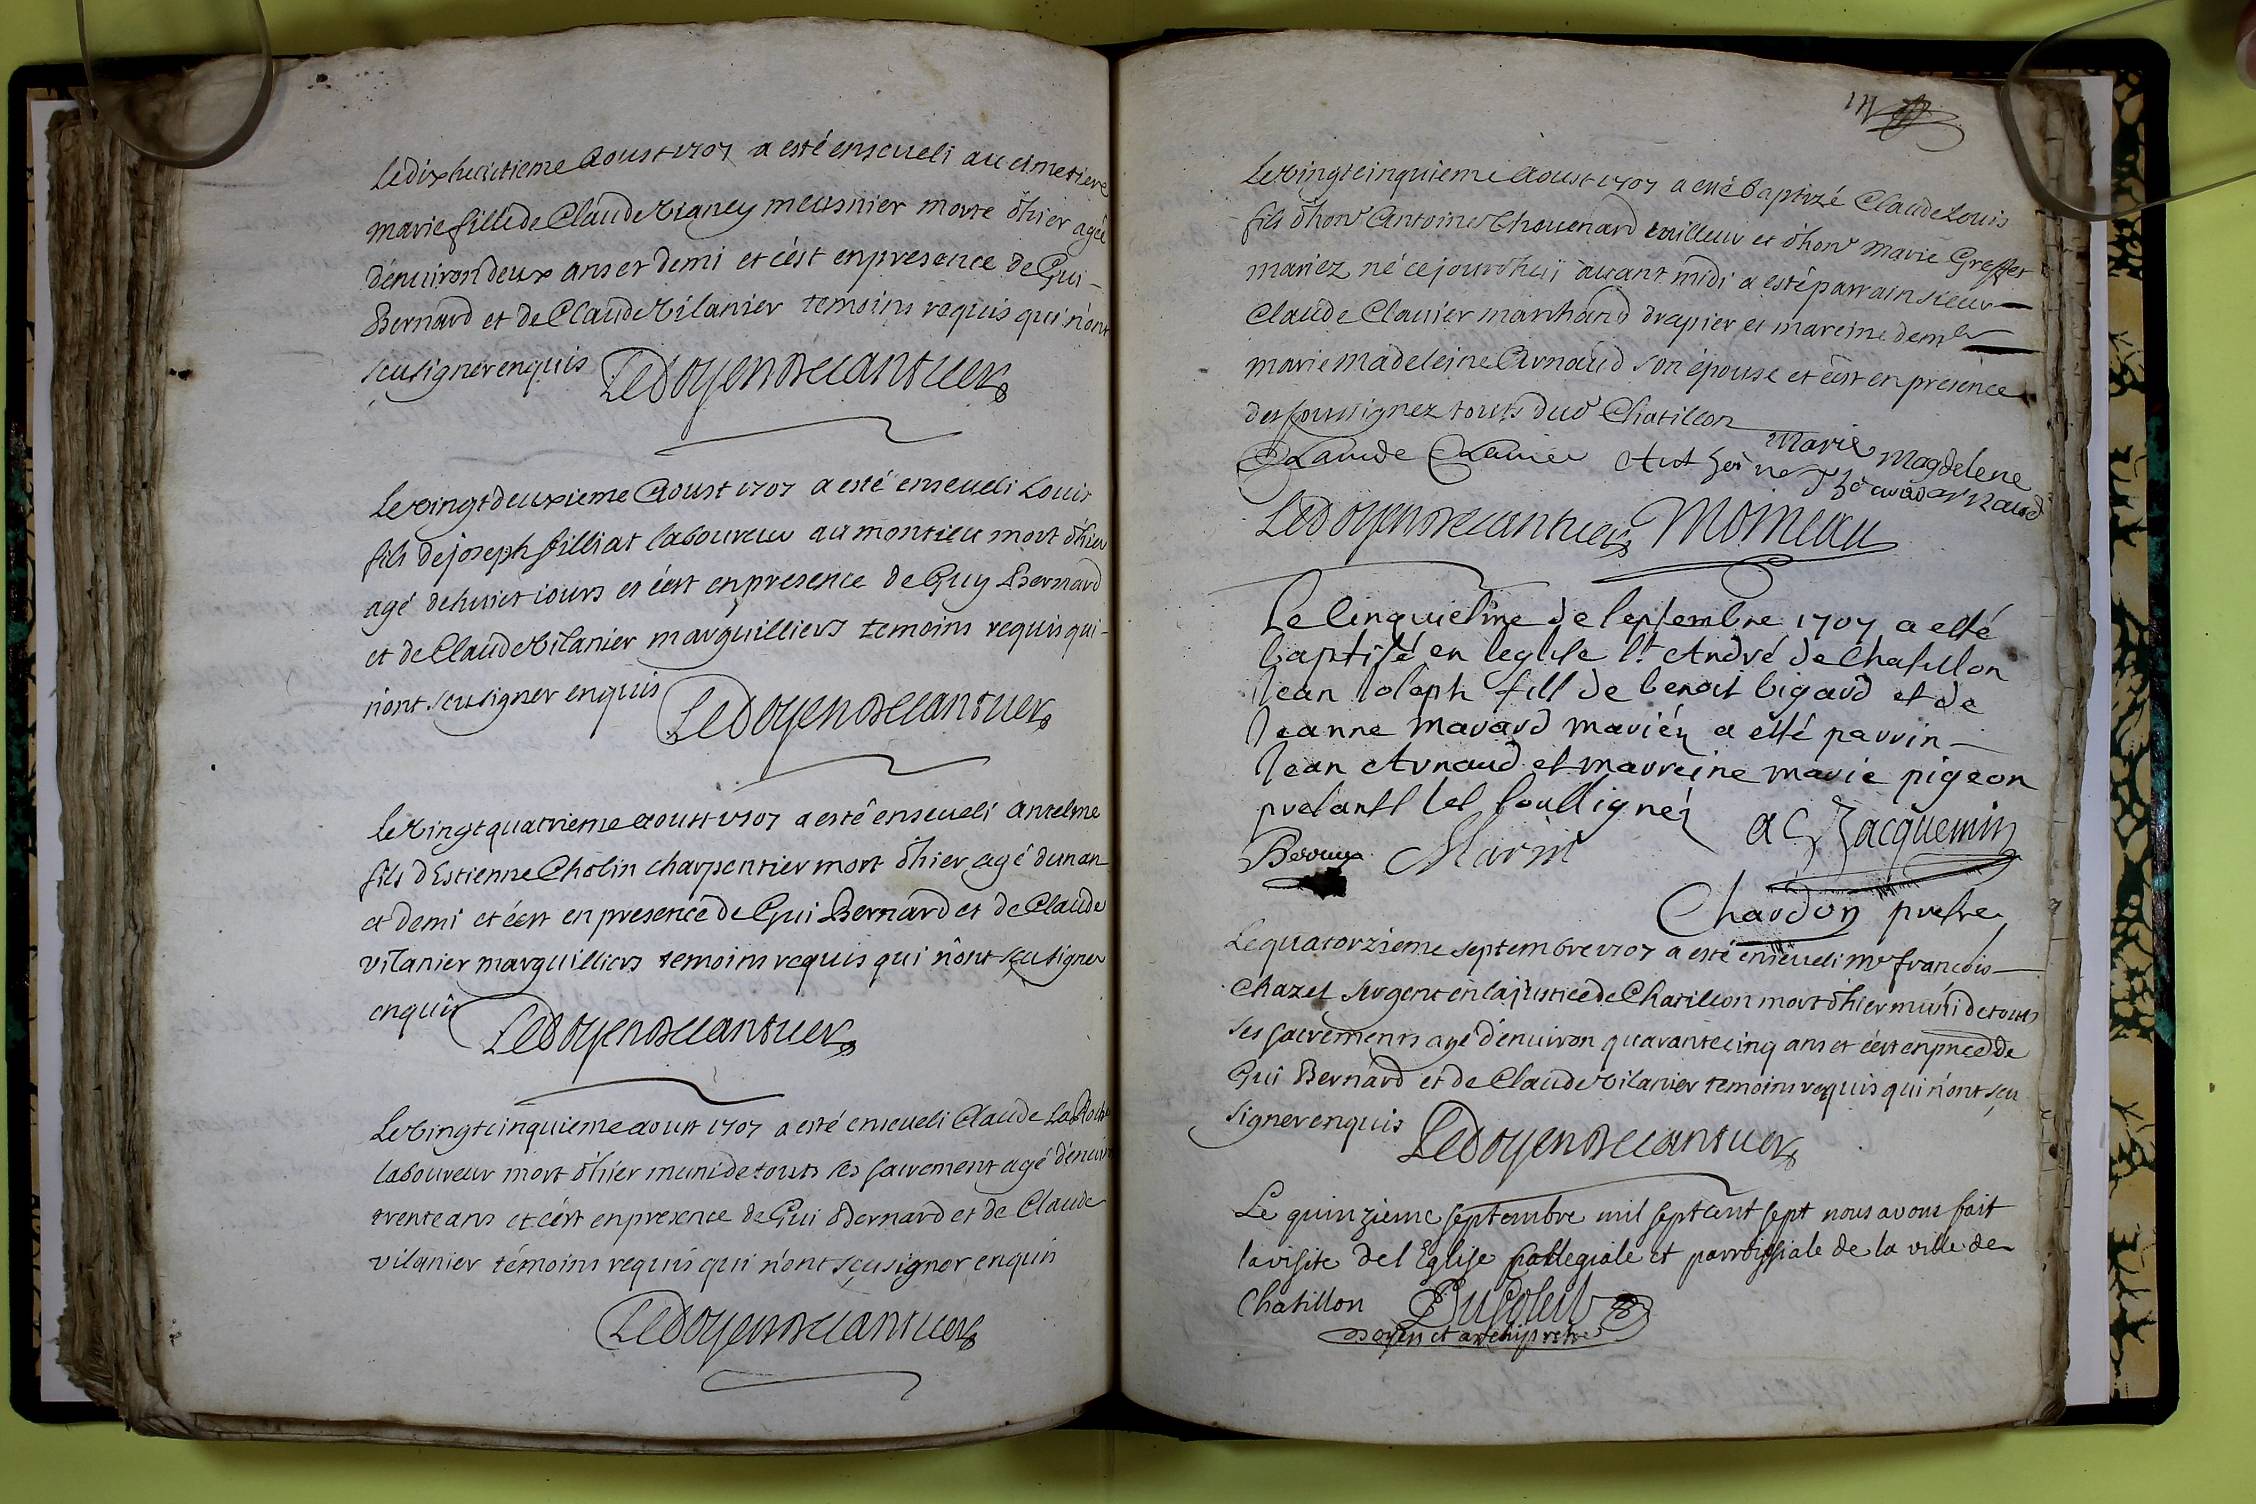 Le dix huitieme Aoust 1707 a esté enseueli au cimetiere
marie fille de Claude Vianey meusnier morte d'hier agée
d'enuiron deux ans et demi et c'est en presence de Gui-
Bernard et de Claude Vilanier temoins requis qui n'ont
sçu signer enquis Ledoyendecantuer
Le vingt deuxieme Aoust 1707 a esté enseueli Louis
fils de joseph filliat laboureur au montieu mort d'hier
agé de huict iours et c'est en presence de Guy Bernard
et de Claude Vilanier marguilliers temoins requis qui-
n'ont sçu signer enquis Ledoyendecantuer
Le vingt quatrieme aoust 1707 a esté enseueli Antelme
fils d'Estienne Cholin charpentier mort d'hier agé d'un an
et demi et c'est en presence de Gui Bernard et de Claude
vilanier marguilliers temoins requis qui n'ont sçu signer
enquis Ledoyendecantuer
Le vingt cinquieme aoust 1707 a esté enseueli Claude La Roche
laboureur mort d'hier muni de touts ses sacrement agé d'enuiron
trente ans et c'est en presence de Gui Bernard et de Claude
vilanier témoins requis qui n'ont sçu signer enquis
Ledoyendecantuer
171
Le vingt cinquieme Aoust 1707 a esté baptizé Claude Louis
fils d'hon^r Antoine Thouenard tailleur et d'hon^r marie Greffet
mariez né ce jourd'huÿ auant midi a esté parrain sieur
Claude Clauier marchand drapier et mareine dem^lle
marie madeleine Arnaud son épouse et c'est en présence
des soussignez touts dud^t Chatillon
Claude Clauier Anthoine Marie Magdelene
Arnaud
Ledoyendecantuer Moineau
Le Cinquiesme de septembre 1707 a esté
baptisé en leglise s^t André de Chastillon
Jean Joseph fils de benoit bigard et de
Jeanne mavard mariéz a esté parrin
Jean Arnaud et marreine marie pigeon
presants les soussignéz a C Jacquemin
Marin
Chardon prestre
Le quatorzieme septembre 1707 a esté enseueli m^e françois
Chazel sergent en la justice de Chatillon mort d'hier muni de touts
ses sacrements agé d'enuiron quarante cinq ans et c'est en pnce de
Gui Bernard et de Claude Vilanier temoins requis qui n'ont sçu
signer enquis Ledoyendecantuer
Le quinzieme septembre mil sept cent sept nous avons fait
la visite de l Eglise collegiale et parroissiale de la ville de
Chatillon
Doyen et archiprestre